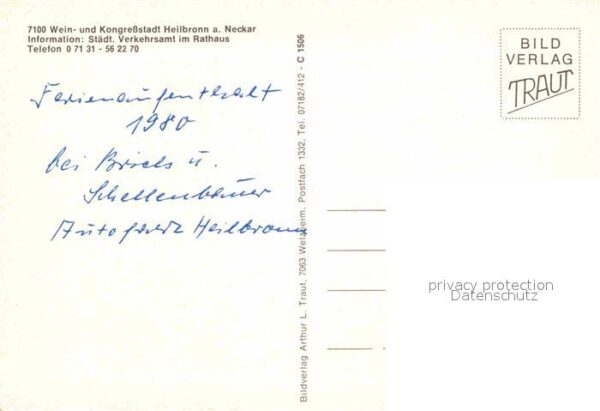 7100 Wein- und Kongreßstadt Heilbronn a. Neckar
Information: Städt. Verkehrsamt im Rathaus
Telefon 0 71 31 - 56 22 70
Ferienaufenthalt
1980
bei Briels u.
Schellenbauer
Autofahrt Heilbronn
Bildverlag Arthur L. Traut. 7063 Welzheim. Postfach 1332. Tel. 07182/412 - C 1506
BILD
VERLAG
TRAUT
privacy protection
Datenschutz